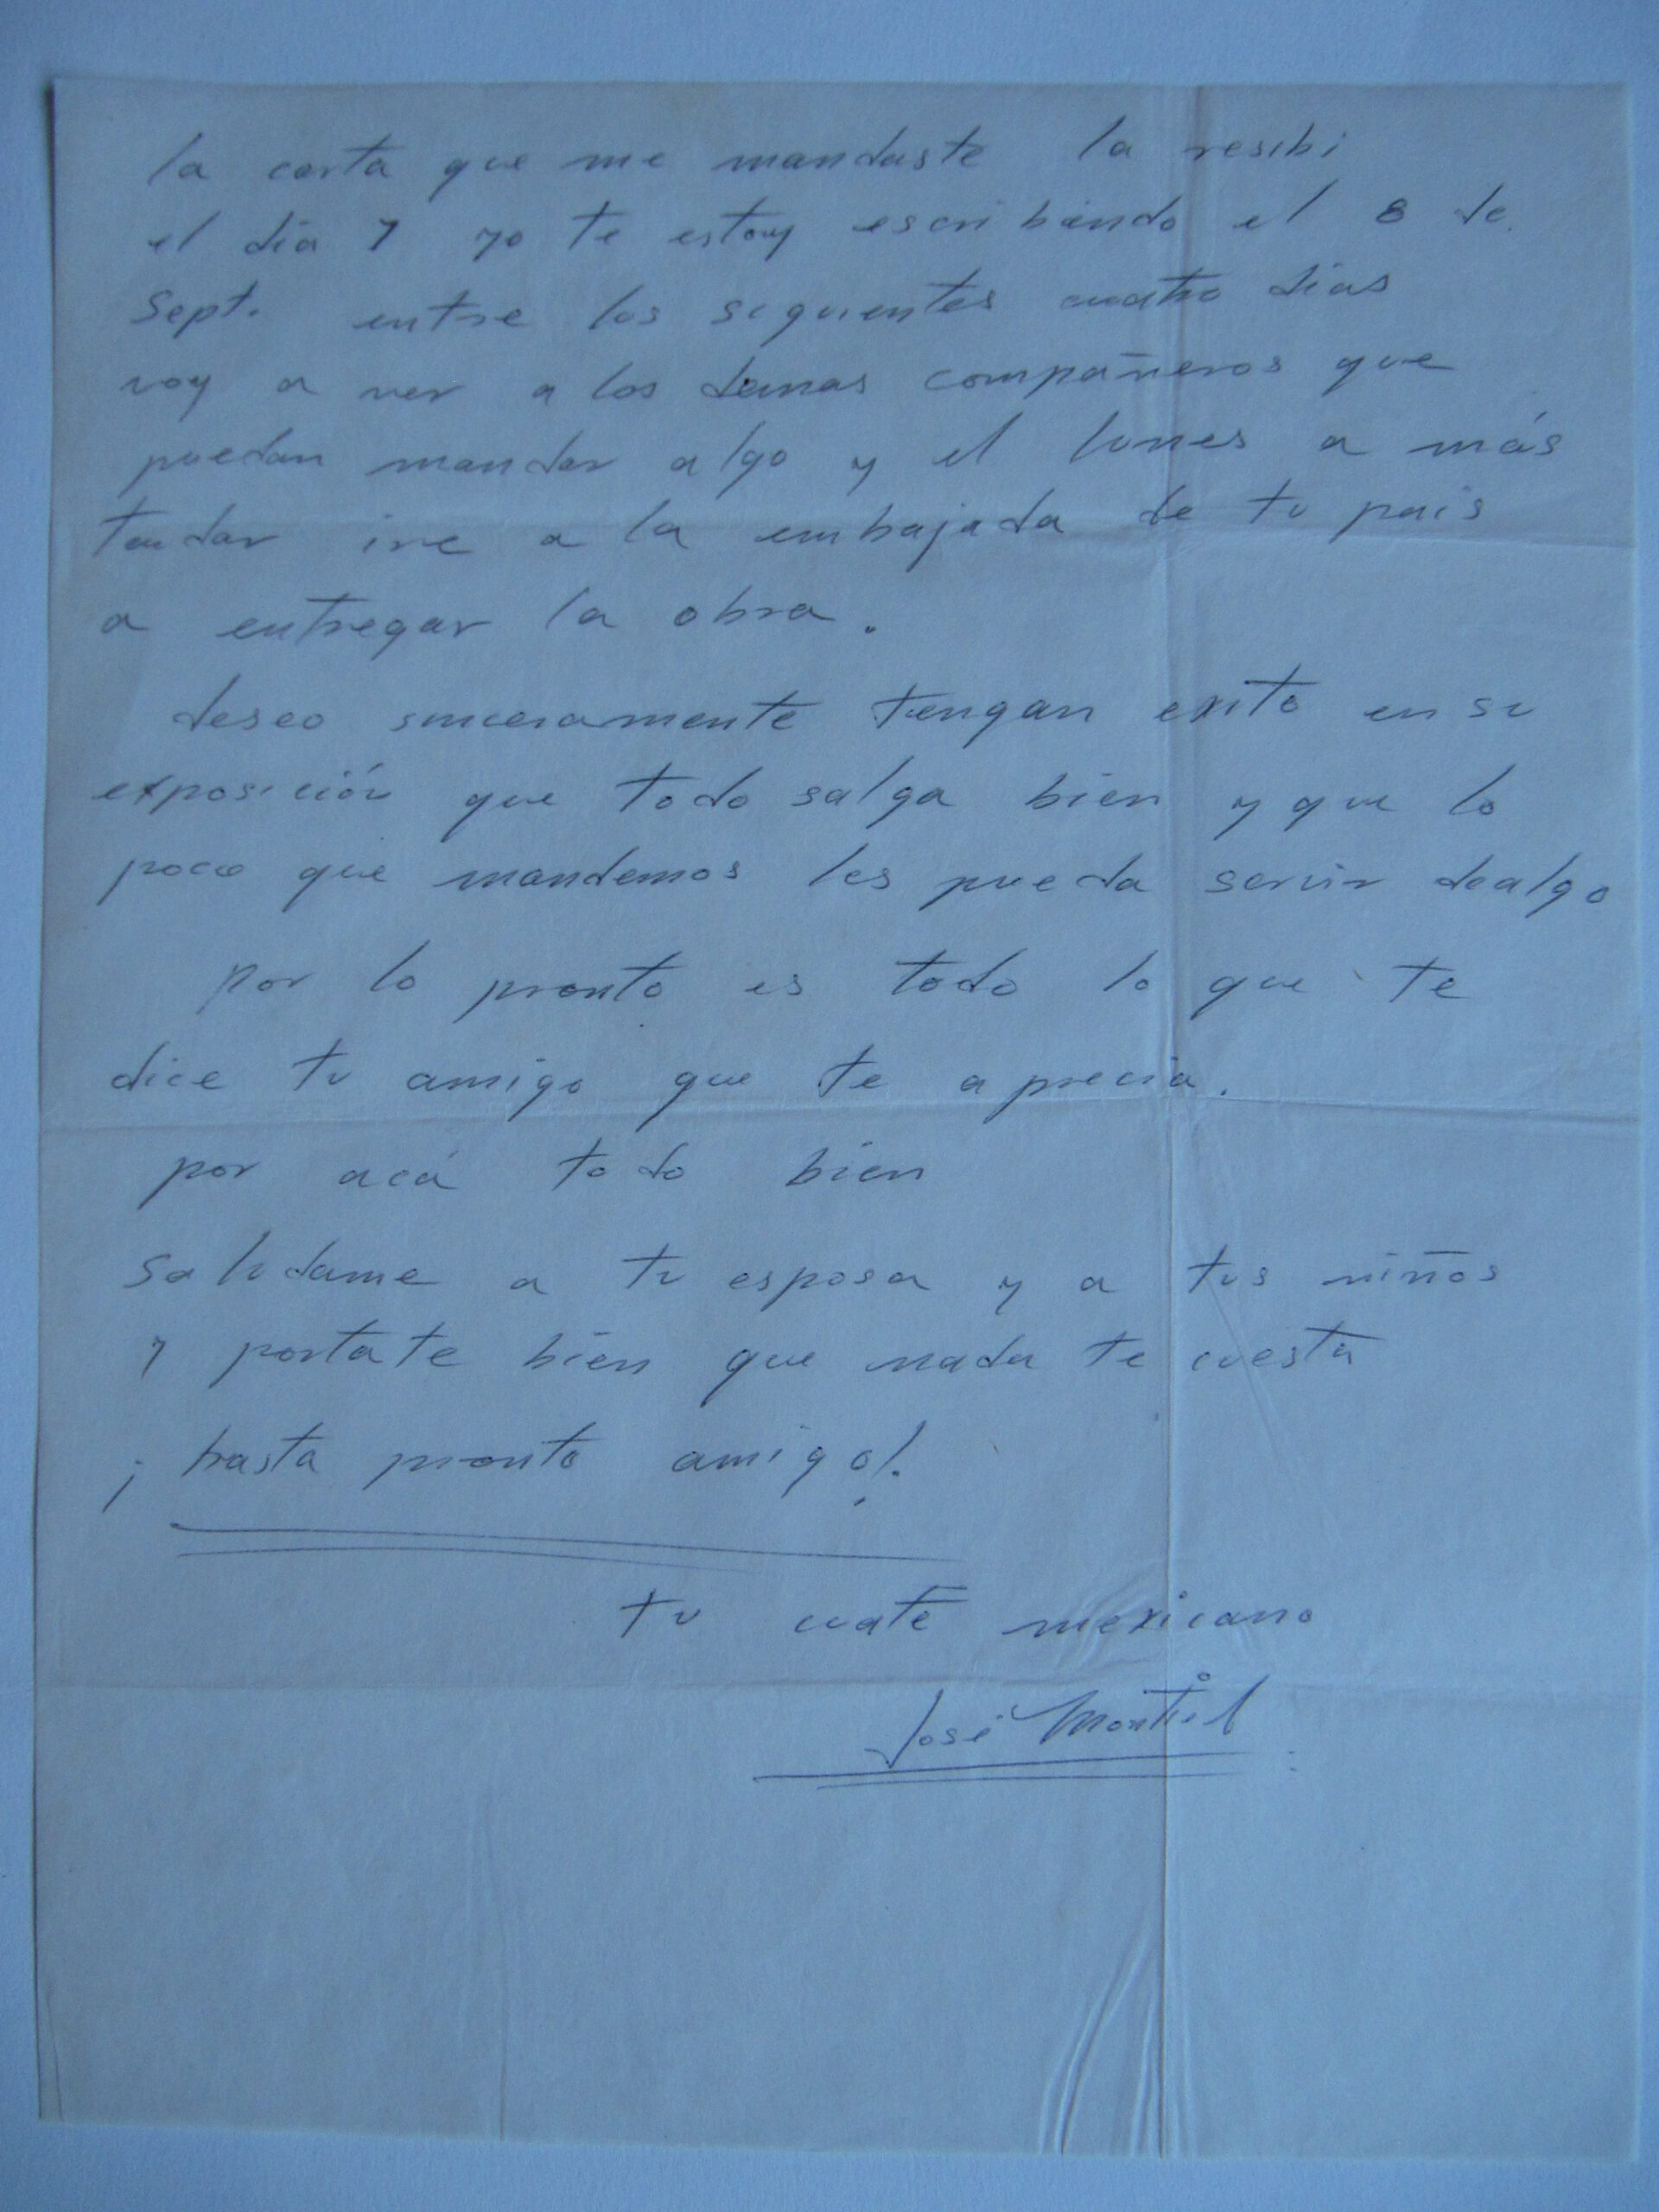 la carta que me mandaste la resibi
el día 7 yo te estoy escribiendo el 8 de
Sept. entre los siguientes cuatro días
voy a ver a los demas compañeros que
puedan mandar algo y el lunes a más
tardar ire a la embajada de tu pais
a entregar la obra.
deseo sinceramente tengan exito en su
exposición que todo salga bien y que lo
poco que mandemos les pueda servir dealgo
por lo pronto es todo lo que te
dice tu amigo que te aprecia.
por acá todo bien
Saludame a tu esposa y a tus niños
y portate bien que nada te cuesta
¡hasta pronto amigo!.
tu cuate mexicano
José Montiel